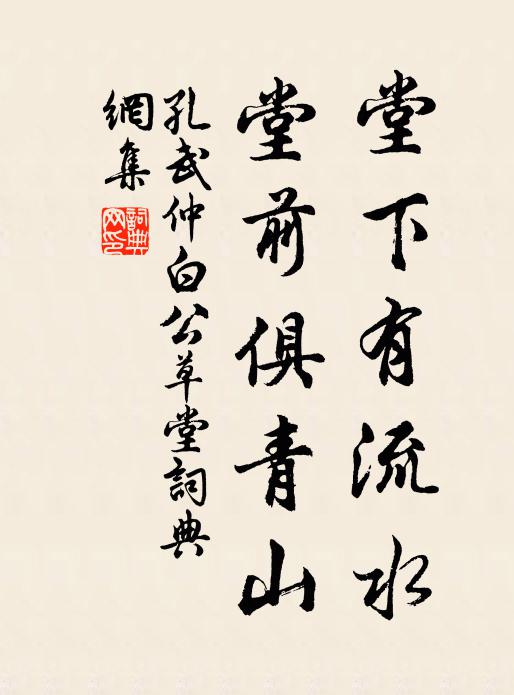 堂下有流水
堂前俱青山
孔武仲白公草堂詞典
網集
詞典
网印